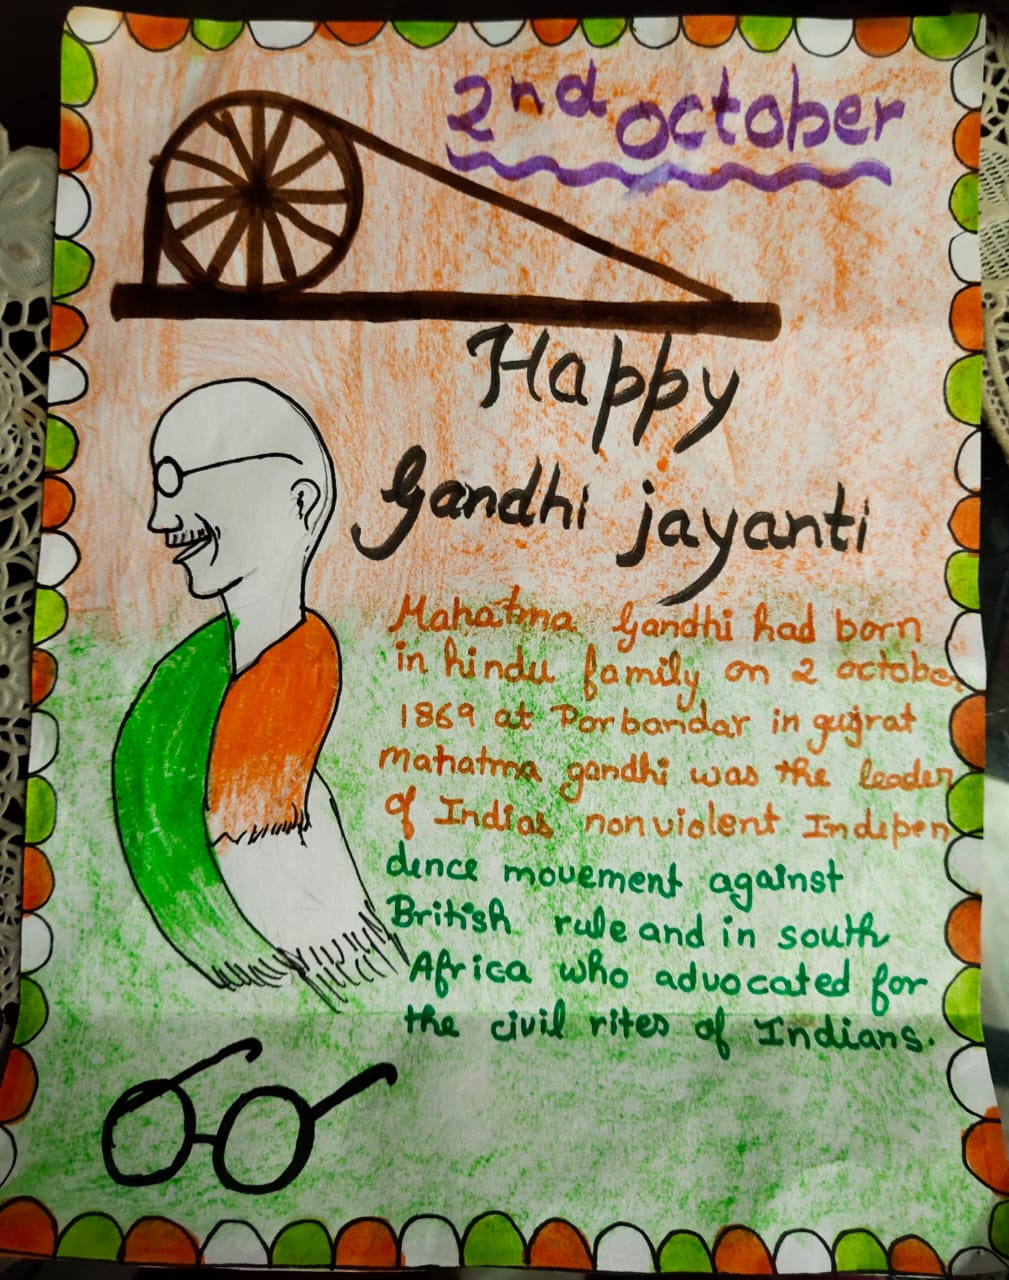 2nd october
Happy
Gandhi jayanti
Mahatma Gandhi had born
in hindu family on 2 october
1869 at Porbandar in gujrat
mahatma gandhi was the leader
of Indias nonviolent Indepen
dence movement against
British rule and in south
Africa who advocated for
the civil rites of Indians.